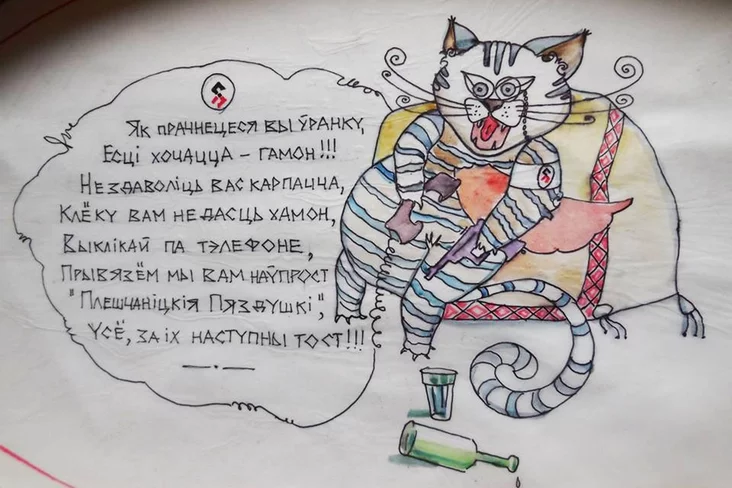 Як прачнецеся вы ўранку,
Есці хочацца – гамон!!!
Не здаволіць вас карпачча,
Клёку вам не дасць хамон,
Выклікай па тэлефоне,
Прывязём мы вам наўпрост
"Плешчаніцкія Пяздушкі",
Усё, за іх наступны тост!!!